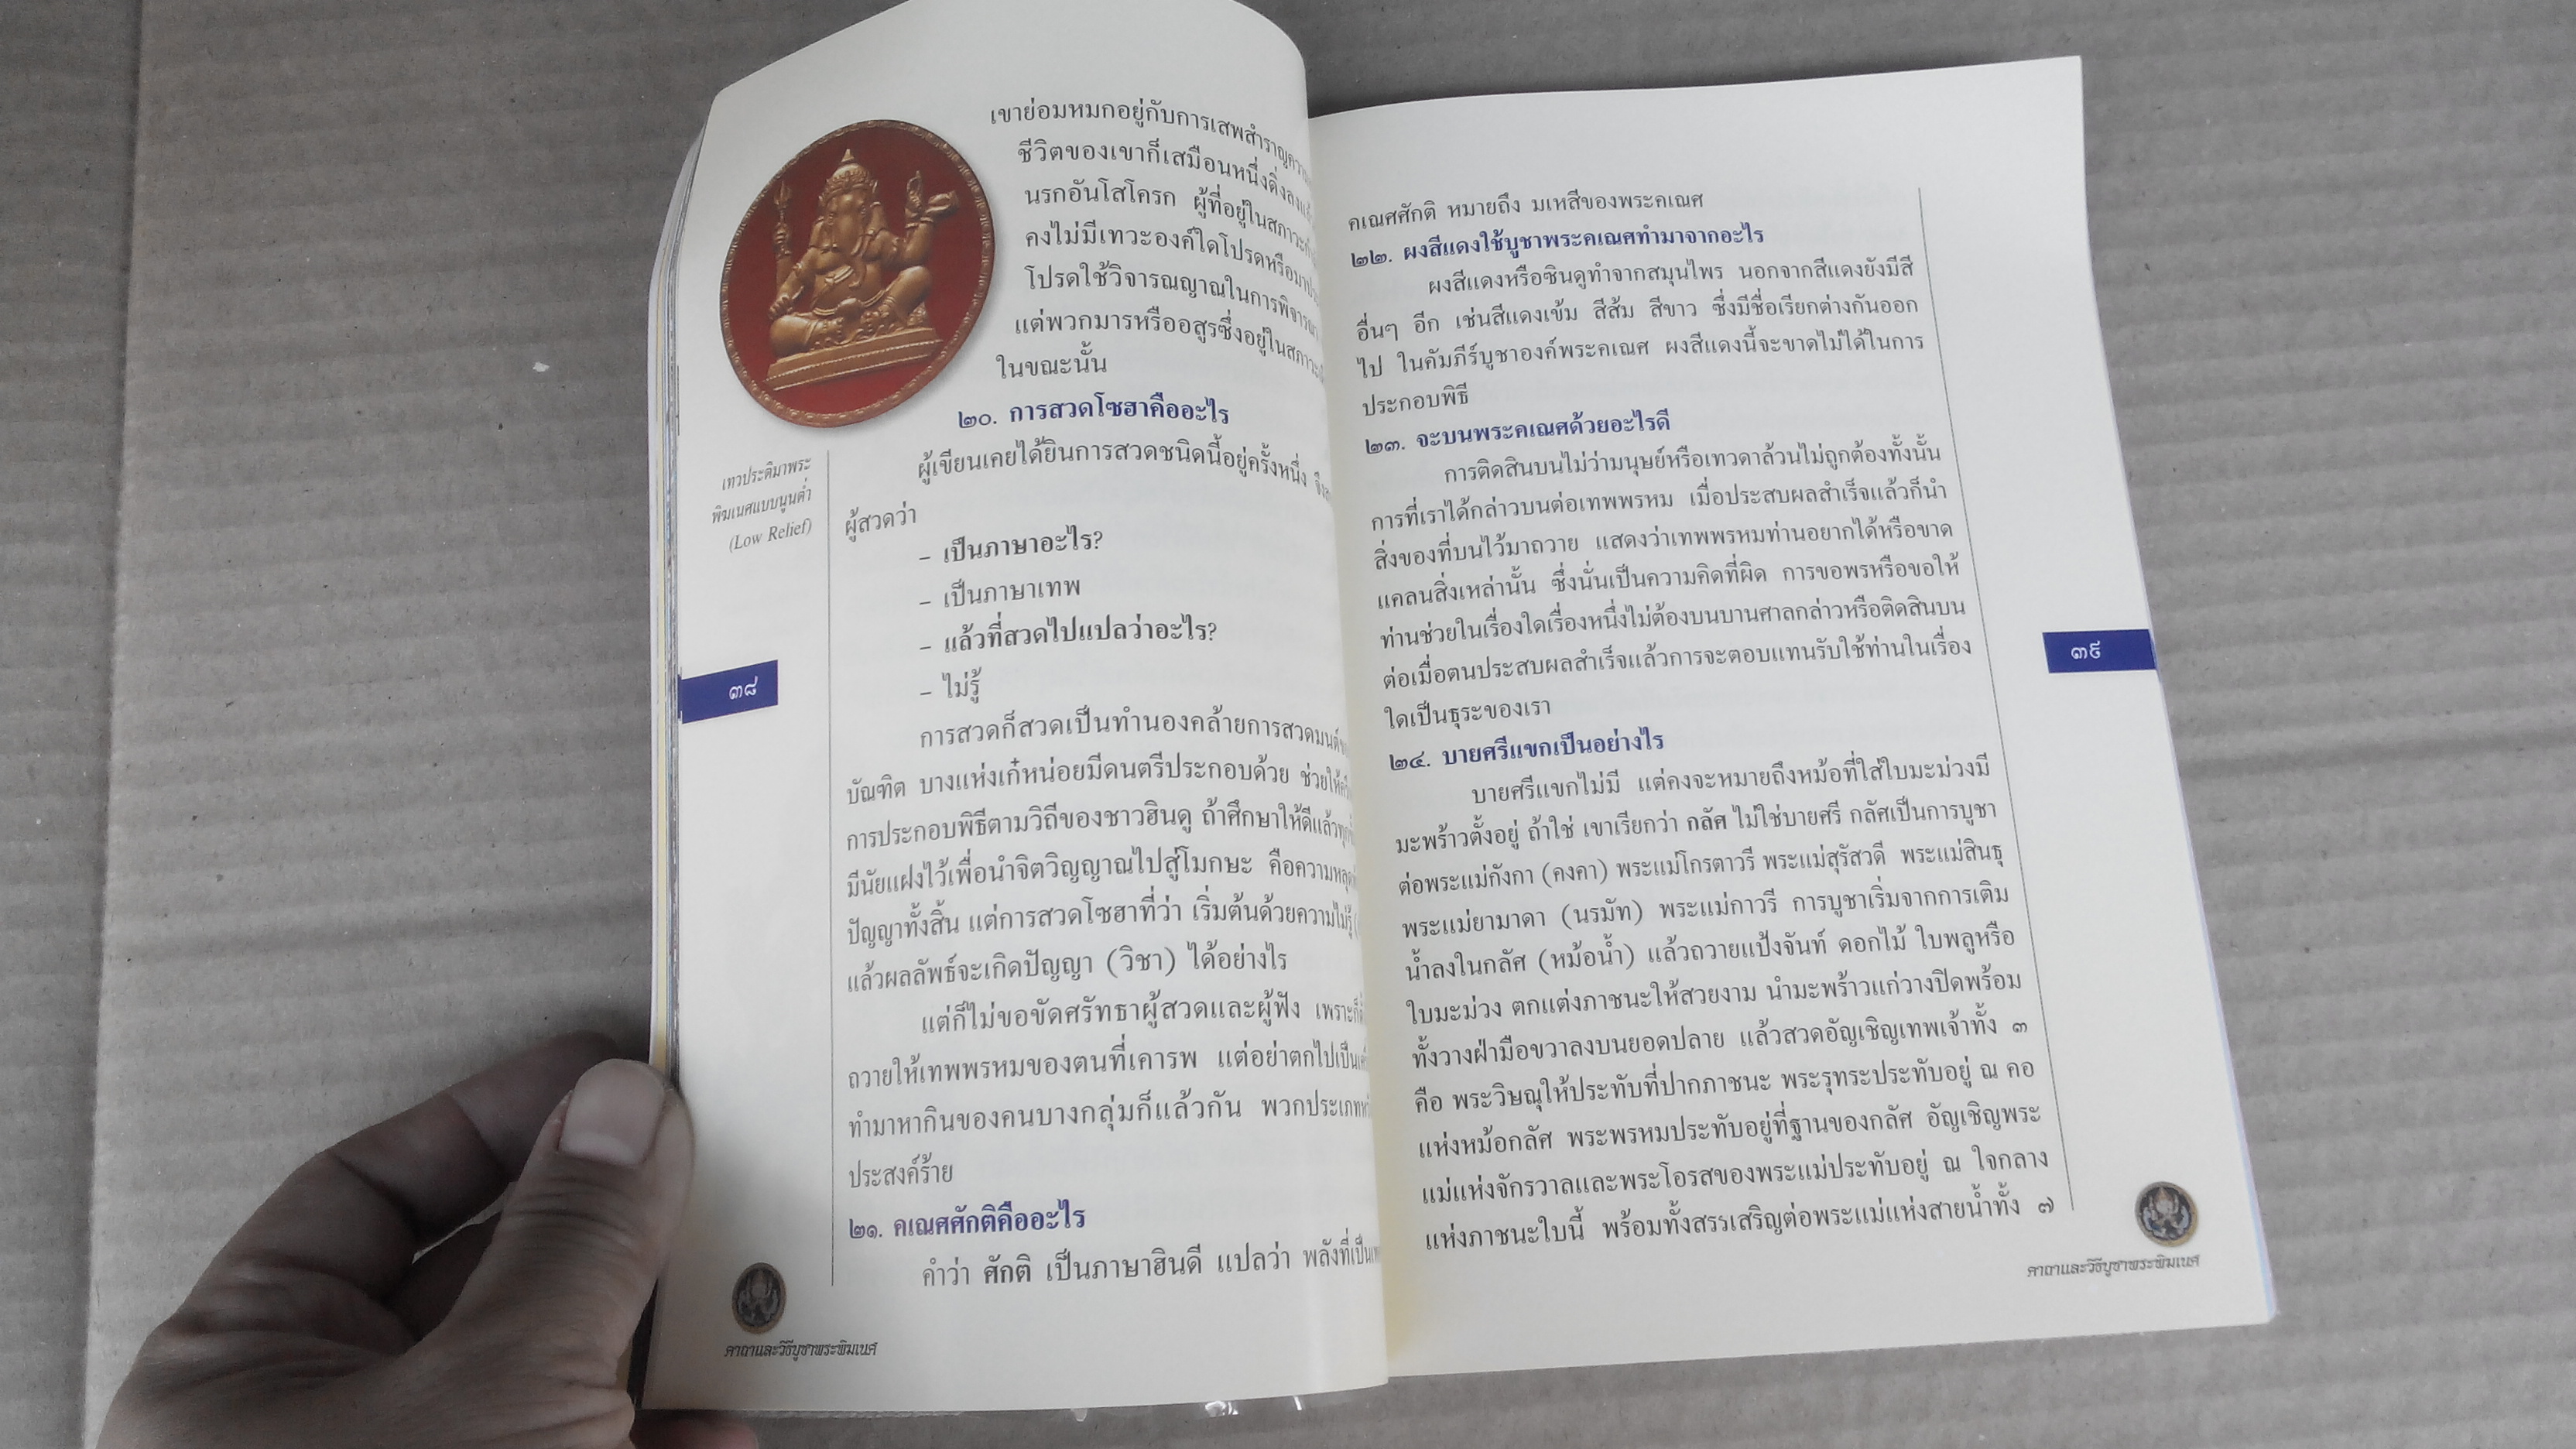 เขาย่อมหมกอยู่กับการเสพสำราญ
ชีวิตของเขาก็เสมือนหนึ่งดิ่งลง
นรกอันโสโครก ผู้ที่อยู่ในสภาวะ
คงไม่มีเทวะองค์ใดโปรดหรือ
โปรดใช้วิจารณญาณในการพิจารณา
แต่พวกมารหรืออสูรซึ่งอยู่ในสภาวะ
ในขณะนั้น
๒๐. การสวดโซฮาคืออะไร
ผู้เขียนเคยได้ยินการสวดชนิดนี้อยู่ครั้งหนึ่ง
ผู้สวดว่า
– เป็นภาษาอะไร?
– เป็นภาษาเทพ
– แล้วที่สวดไปแปลว่าอะไร?
– ไม่รู้
การสวดก็สวดเป็นทำนองคล้ายการสวดมนต์
บัณฑิต บางแห่งเก๋หน่อยมีดนตรีประกอบด้วย ช่วยให้
การประกอบพิธีตามวิถีของชาวฮินดู ถ้าศึกษาให้ดีแล้ว
มีนัยแฝงไว้เพื่อนำจิตวิญญาณไปสู่โมกษะ คือความ
ปัญญาทั้งสิ้น แต่การสวดโซฮาที่ว่า เริ่มต้นด้วยความไม่รู้
แล้วผลลัพธ์จะเกิดปัญญา (วิชา) ได้อย่างไร
แต่ก็ไม่ขอขัดศรัทธาผู้สวดและผู้ฟัง
ถวายให้เทพพรหมของตนที่เคารพ แต่อย่าตกไปเป็น
ทำมาหากินของคนบางกลุ่มก็แล้วกัน พวกประเภท
ประสงค์ร้าย
๒๑. คเณศศักติคืออะไร
คำว่า ศักติ เป็นภาษาฮินดี แปลว่า พลังที่เป็น
เทวประติมาพระ
พิฆเนศแบบนูนต่ำ
(Low Relief)
๓๘
คาถาและวิธีบูชาพระพิฆเนศ
คเณศศักติ หมายถึง มเหสีของพระคเณศ
๒๒. ผงสีแดงใช้บูชาพระคเณศทำมาจากอะไร
ผงสีแดงหรือซินดูทำจากสมุนไพร นอกจากสีแดงยังมีสี
อื่นๆ อีก เช่นสีแดงเข้ม สีส้ม สีขาว ซึ่งมีชื่อเรียกต่างกันออก
ไป ในคัมภีร์บูชาองค์พระคเณศ ผงสีแดงนี้จะขาดไม่ได้ในการ
ประกอบพิธี
๒๓. จะบนพระคเณศด้วยอะไรดี
การติดสินบนไม่ว่ามนุษย์หรือเทวดาล้วนไม่ถูกต้องทั้งนั้น
การที่เราได้กล่าวบนต่อเทพพรหม เมื่อประสบผลสำเร็จแล้วก็นำ
สิ่งของที่บนไว้มาถวาย แสดงว่าเทพพรหมท่านอยากได้หรือขาด
แคลนสิ่งเหล่านั้น ซึ่งนั่นเป็นความคิดที่ผิด การขอพรหรือขอให้
ท่านช่วยในเรื่องใดเรื่องหนึ่งไม่ต้องบนบานศาลกล่าวหรือติดสินบน
ต่อเมื่อตนประสบผลสำเร็จแล้วการจะตอบแทนรับใช้ท่านในเรื่อง
ใดเป็นธุระของเรา
๒๔. บายศรีแขกเป็นอย่างไร
บายศรีแขกไม่มี แต่คงจะหมายถึงหม้อที่ใส่ใบมะม่วงมี
มะพร้าวตั้งอยู่ ถ้าใช่ เขาเรียกว่า กลัศ ไม่ใช่บายศรี กลัศเป็นการบูชา
ต่อพระแม่กังกา (คงคา) พระแม่โกรตาวรี พระแม่สุรัสวดี พระแม่สินธุ
พระแม่ยามาดา (นรมัท) พระแม่กาวรี การบูชาเริ่มจากการเติม
น้ำลงในกลัศ (หม้อน้ำ) แล้วถวายแป้งจันท์ ดอกไม้ ใบพลูหรือ
ใบมะม่วง ตกแต่งภาชนะให้สวยงาม นำมะพร้าวแก่วางปิดพร้อม
ทั้งวางฝ่ามือขวาลงบนยอดปลาย แล้วสวดอัญเชิญเทพเจ้าทั้ง ๓
คือ พระวิษณุให้ประทับที่ปากภาชนะ พระรุทระประทับอยู่ ณ คอ
แห่งหม้อกลัศ พระพรหมประทับอยู่ที่ฐานของกลัศ อัญเชิญพระ
แม่แห่งจักรวาลและพระโอรสของพระแม่ประทับอยู่ ณ ใจกลาง
แห่งภาชนะใบนี้ พร้อมทั้งสรรเสริญต่อพระแม่แห่งสายน้ำทั้ง ๗
๓๙
คาถาและวิธีบูชาพระพิฆเนศ